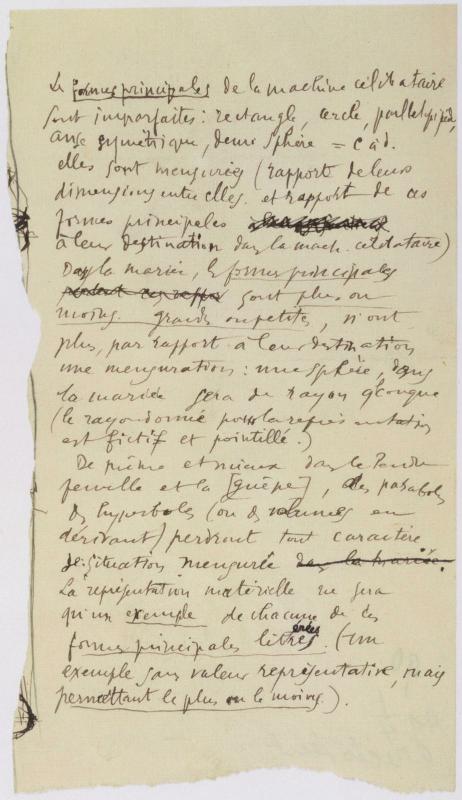 Les formes principales de la machine célibataire
sont imparfaites : rectangle, cercle, parallelepipède,
anse symétrique, demi sphère = c'àd.
elles sont mensurées (rapport de leurs
dimensions entre elles. et rapport de ces
formes principales
à leur destination dans la mach. célibataire)
Dans la mariée, les formes principales
sont plus ou
moins grandes ou petites, n'ont
plus, par rapport à leur destination
une mensuration : une sphère, dans
la mariée sera de rayon qconque
(le rayon donné pour la représentation
est fictif et pointillé.)
De même et mieux dans le Pendu
femelle et la [guêpe], des paraboles
des hyperboles (ou des volumes en
dérivant) perdront tout caractère
de situation mensurée dans la mariée.
La représentation matérielle ne sera
qu'un exemple de chacune de ces
formes principales libérées. (un
exemple sans valeur représentative, mais
permettant le plus ou le moins).